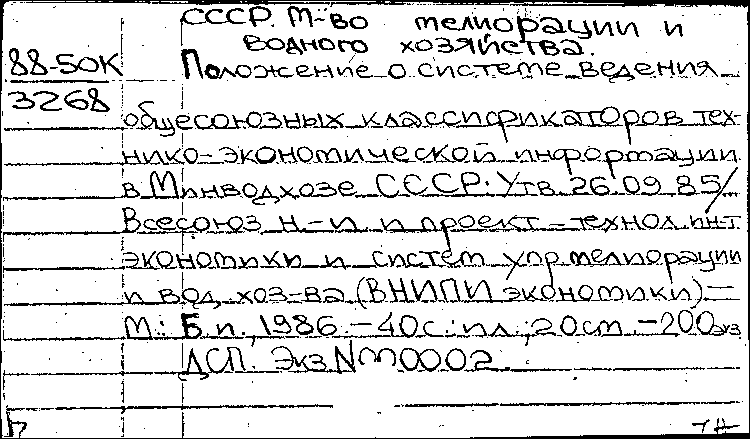 СССР. М-во мелиорации и
водного хозяйства.
88-50К
3268
Положение о системе ведения
общесоюзных классификаторов тех-
нико-экономической информации
в Минводхозе СССР: Утв. 26.09.85/
Всесоюз. н.-и. и проект.-технол. ин-т
экономики и систем упр. мелиорации
и вод. хоз-ва (ВНИПИ экономики).—
М.: Б. и., 1986.—40с.: ил.; 20см.—200экз
ДСП. Экз.N 0002.
П